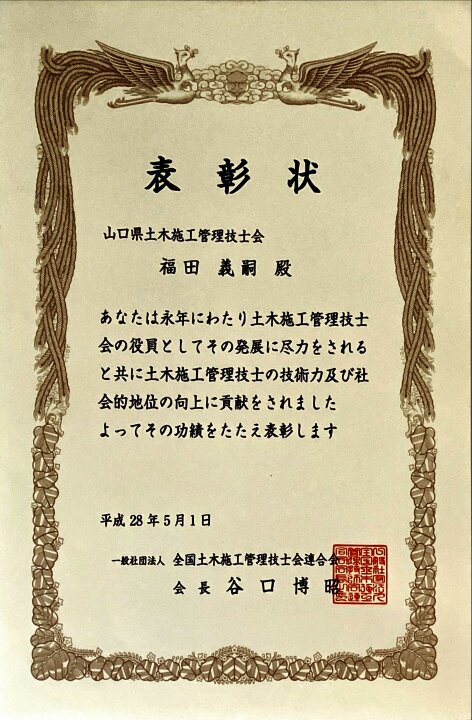 表彰状
山口県土木施工管理技士会
福田 義嗣 殿
あなたは永年にわたり土木施工管理技士
会の役員としてその発展に尽力をされる
と共に土木施工管理技士の技術力及び社
会的地位の向上に貢献をされました
よってその功績をたたえ表彰します
平成28年5月1日
一般社団法人 全国土木施工管理技士会連合会
会長 谷口博昭